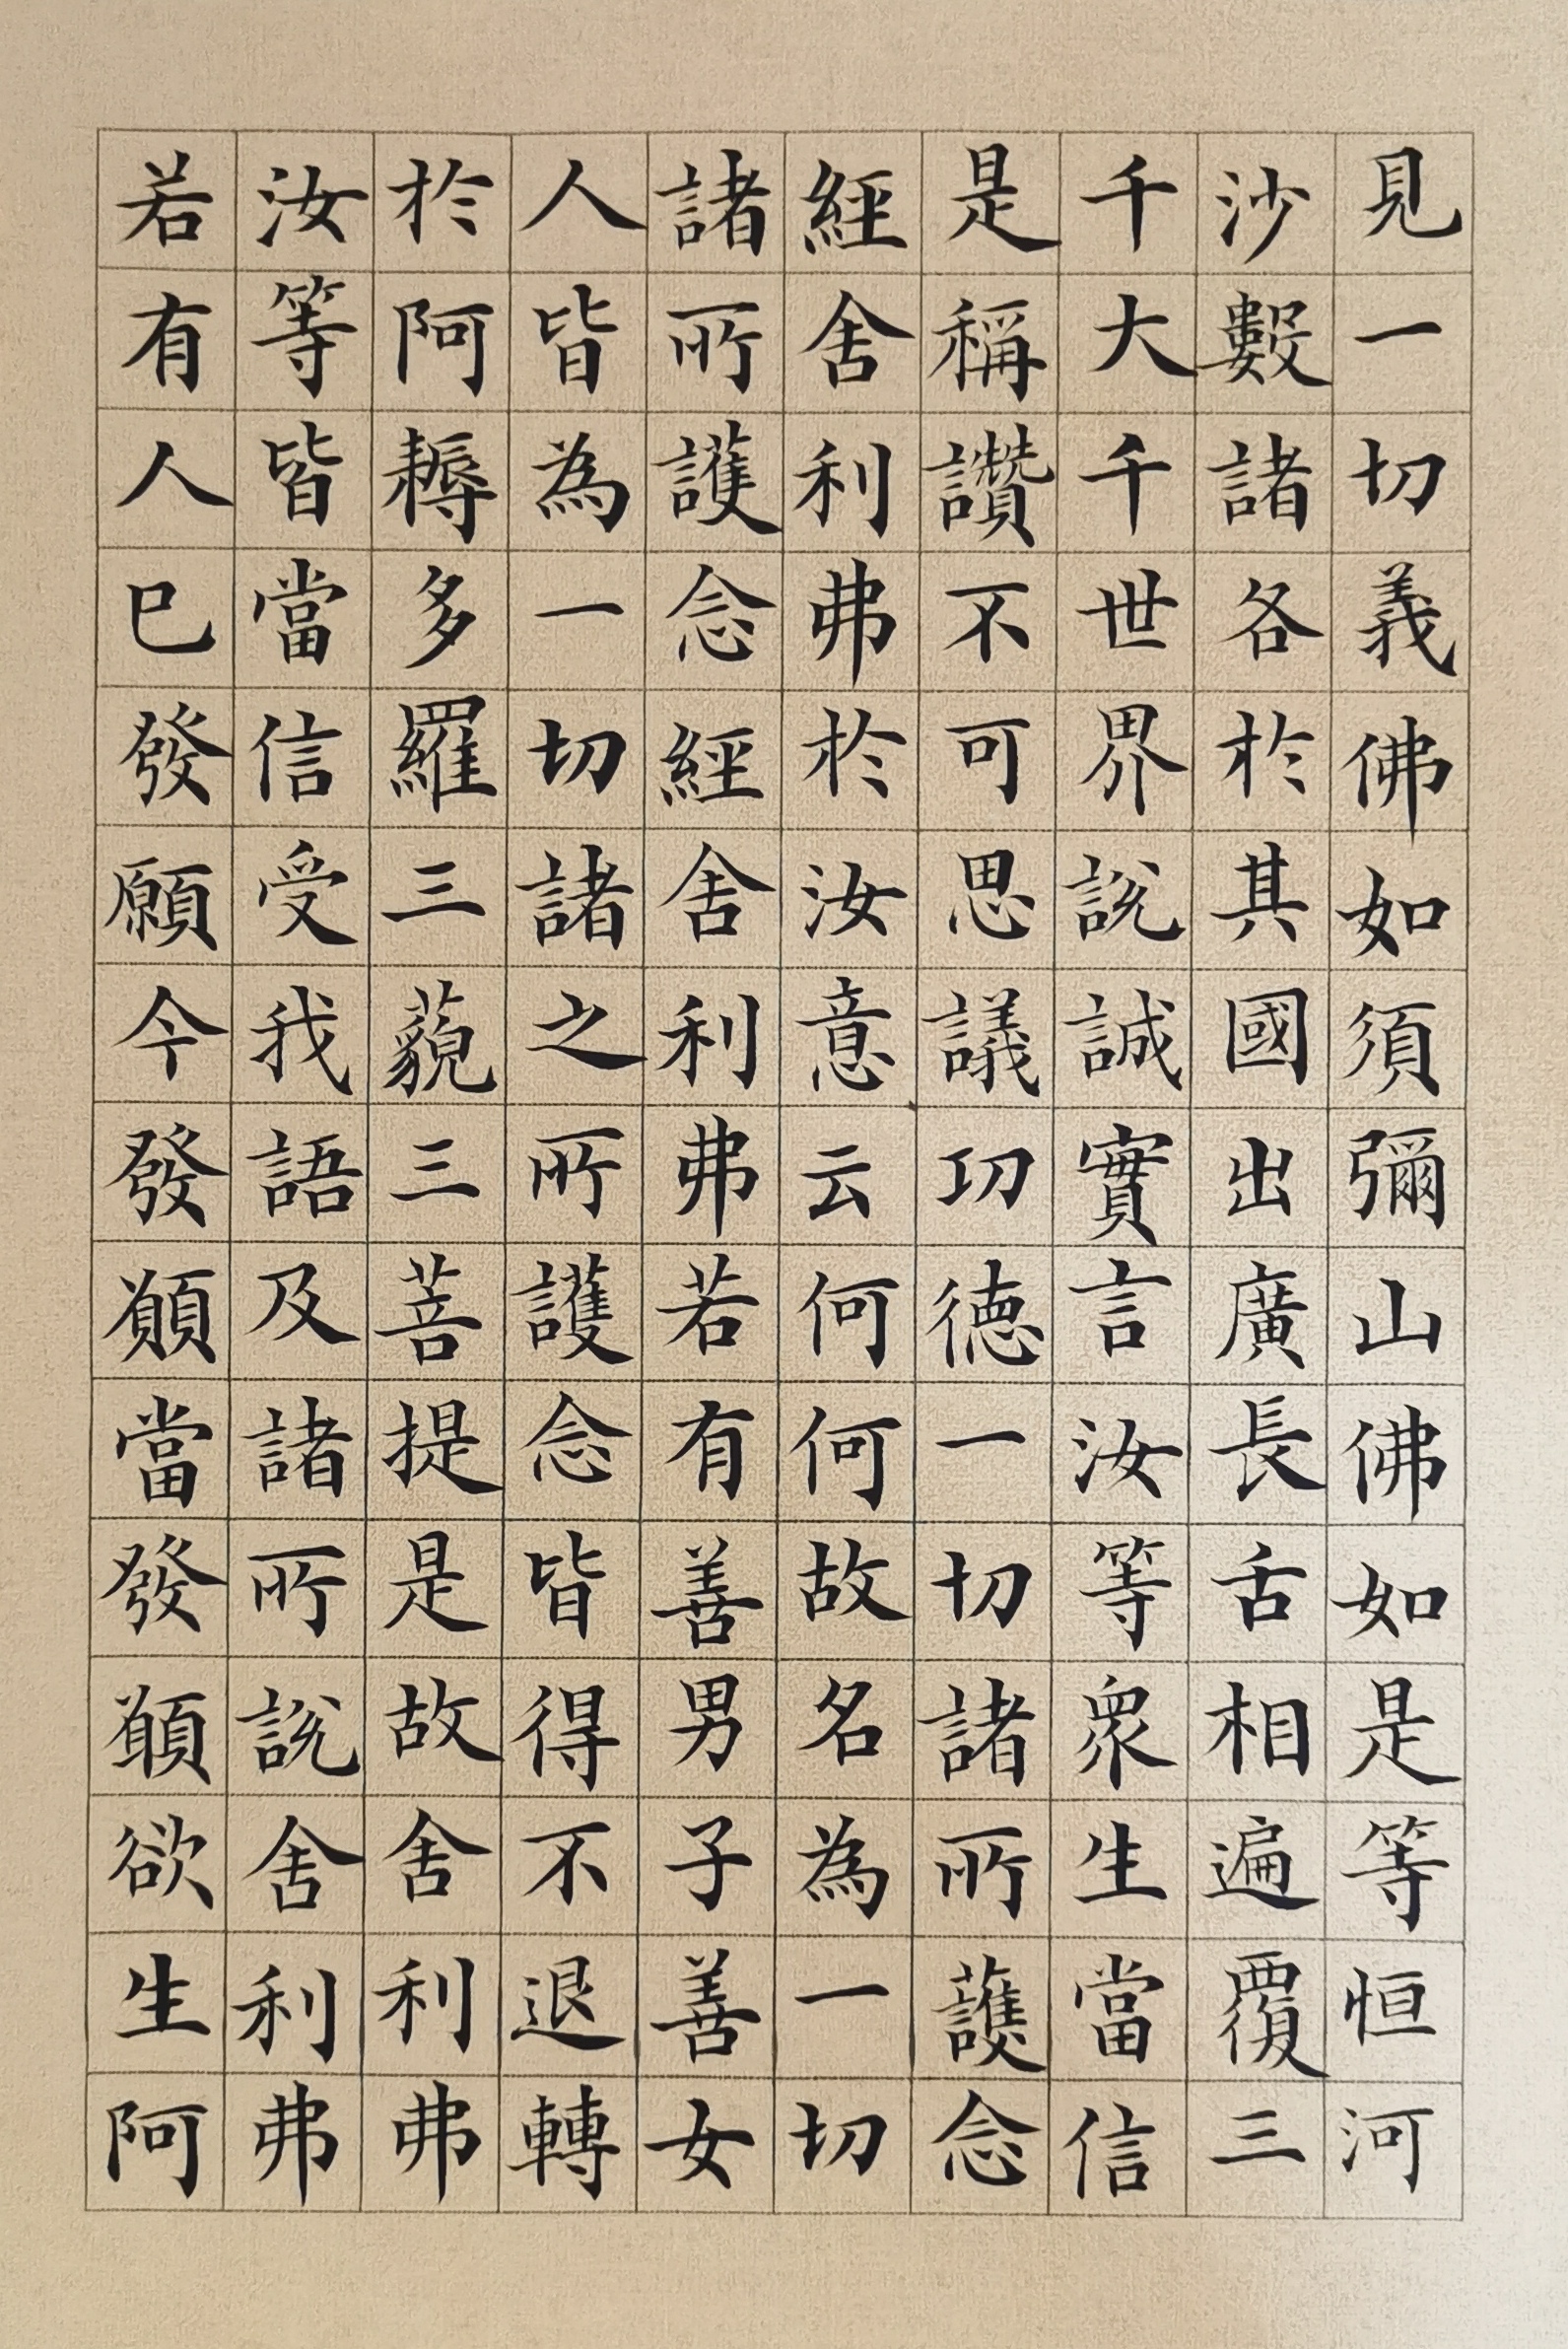 見一切義佛如須彌山佛如是等恒河
沙數諸各於其國出廣長舌相遍覆三
千大千世界說誠實言汝等衆生當信
是稱讚不可思議功德一切諸所護念
經舍利弗於汝意云何何故名為一切
諸所護念經舍利弗若有善男子善女
人皆為一切諸之所護念皆得不退轉
於阿耨多羅三藐三菩提是故舍利弗
汝等皆當信受我語及諸所說舍利弗
若有人已發願今發願當發願欲生阿